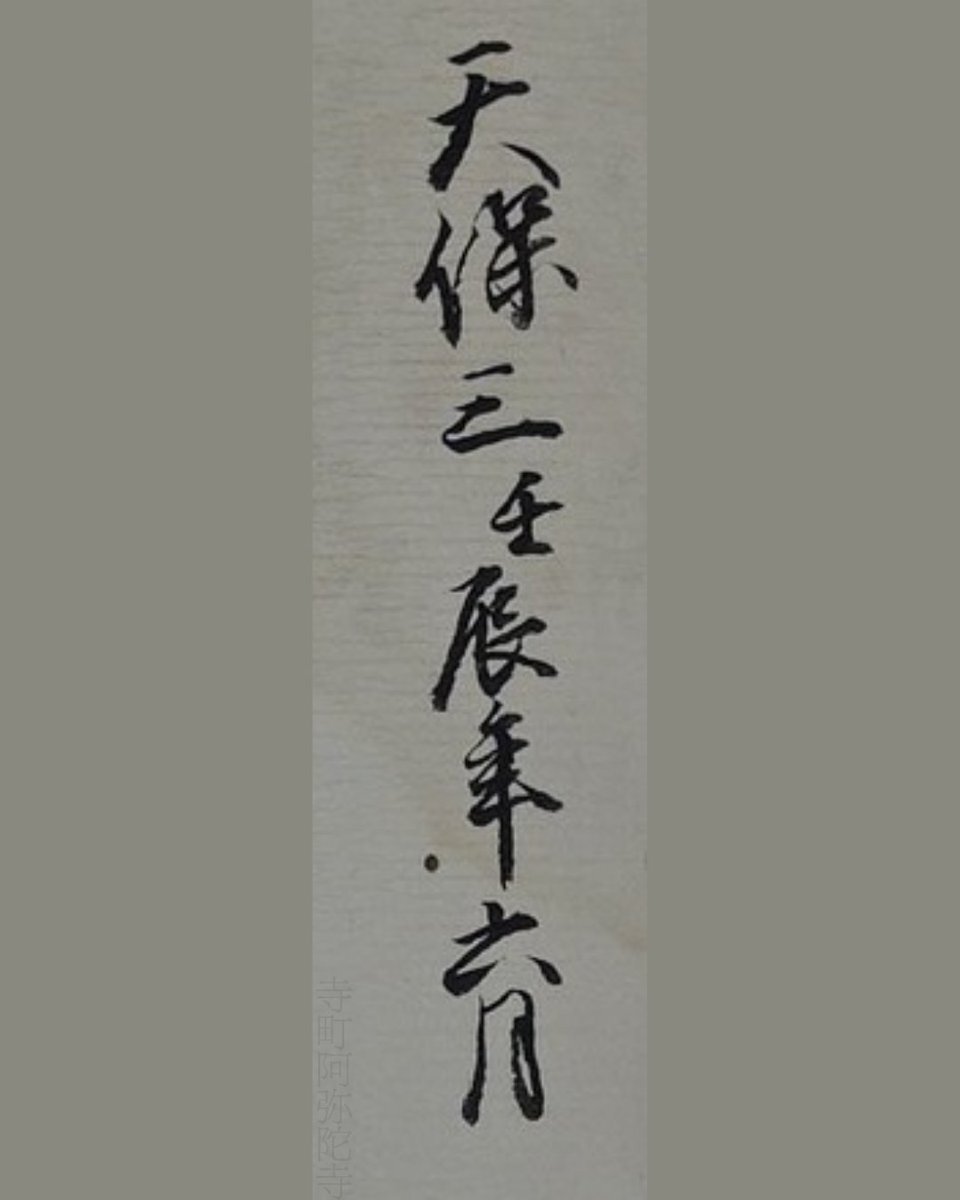 天保三壬辰年六月
寺町阿弥陀寺